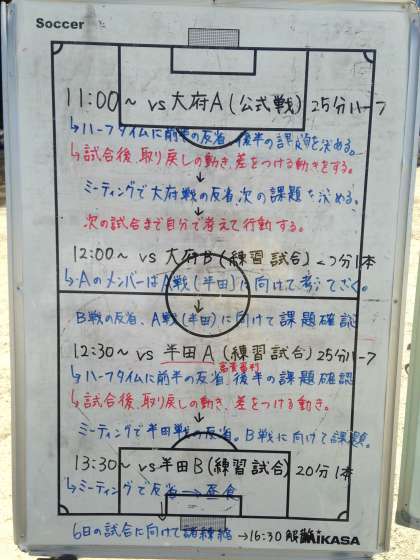 Soccer
11:00～ vs 大府A (公式戦) 25分ハーフ
↳ハーフタイムに前半の反省、後半の課題を決める。
↳試合後、取り戻しの動き、差をつける動きをする。
↓
ミーティングで大府戦の反省、次の課題を決める。
↓
次の試合まで自分で考えて行動する。
12:00～ vs 大府B (練習試合) 20分1本
↳Aのメンバーは A戦 (半田) に向けて考えておく。
↓
B戦の反省、A戦 (半田) に向けて課題確認
12:30～ vs 半田A (練習試合) 25分ハーフ
↳ハーフタイムに前半の反省、後半の課題確認
↳試合後、取り戻しの動き、差をつける動き。
↓
ミーティングで半田戦の反省。B戦に向けて課題。
13:30～ vs 半田B (練習試合) 20分1本
↳ミーティングで反省 → 昼食
↓
6日の試合に向けて諸連絡 → 16:30 解散
MIKASA